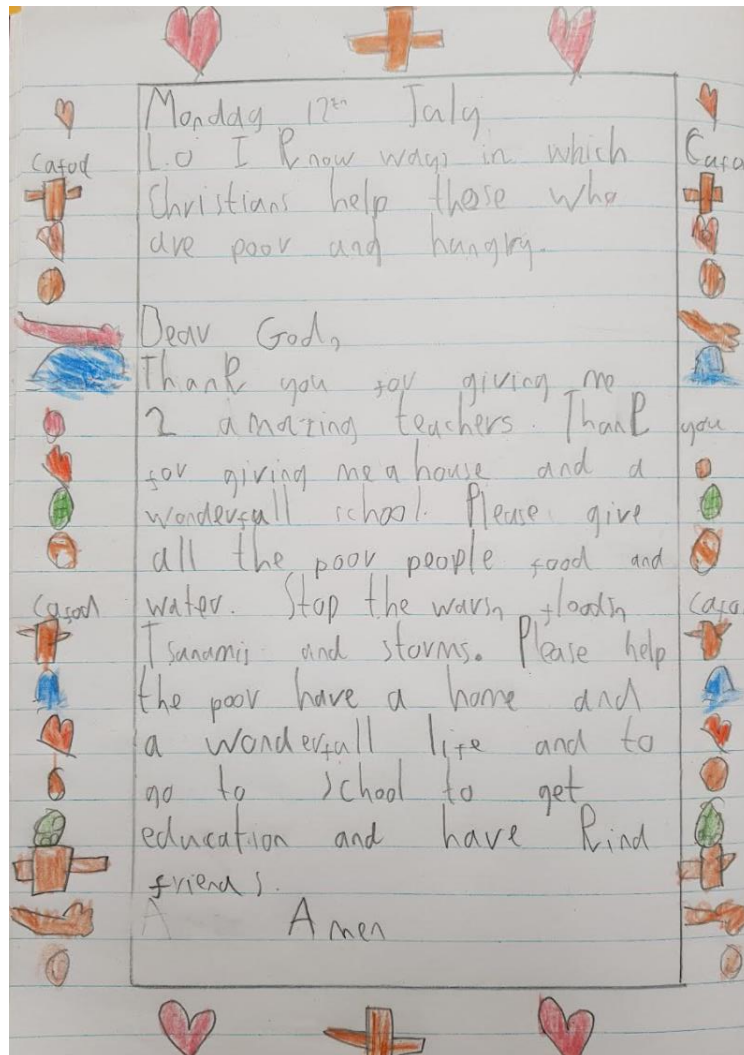 Monday 12th July
Cafod L.O I know ways in which Cafo
Christians help those who
are poor and hungry.
Dear God,
Thank you for giving me
2 amazing teachers. Thank you
for giving me a house and a
wonderfull school. Please give
all the poor people food and
Cafod water. Stop the wars, floods, Cafo
Tsanamis and storms. Please help
the poor have a home and
a wonderfull life and to
go to school to get
education and have kind
friends.
A Amen